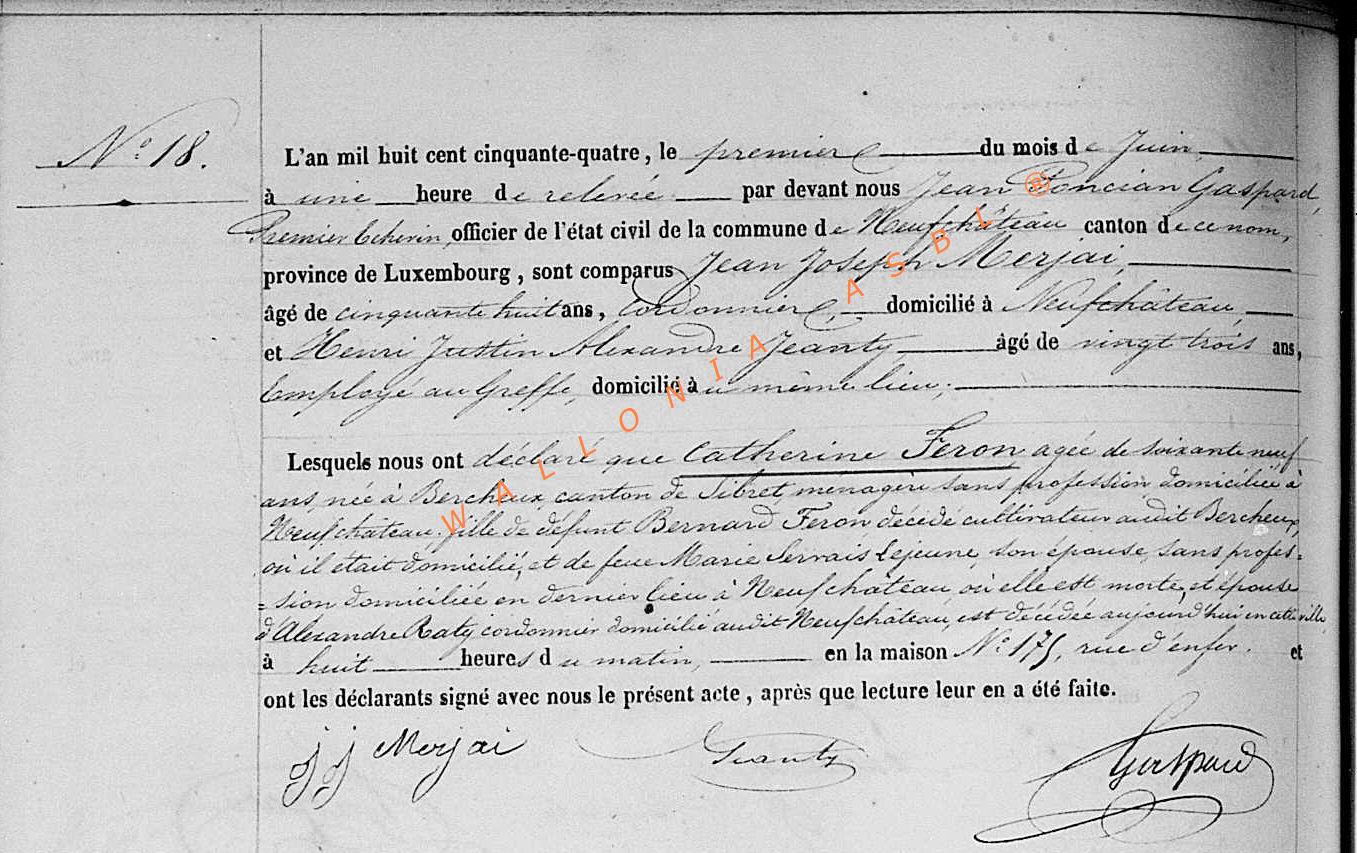 N.° 18.
L'an mil huit cent cinquante-quatre, le premier du mois de Juin,
à une heure de relevée par devant nous Jean Poncian Gaspard,
Premier Echevin, officier de l'état civil de la commune de Neufchâteau canton de ce nom,
province de Luxembourg, sont comparus Jean Joseph Merjai,
âgé de cinquante huit ans, Cordonnier, domicilié à Neufchâteau,
et Henri Justin Alexandre Jeanty âgé de vingt trois ans,
Employé au Greffe, domicilié au même lieu;
Lesquels nous ont déclaré que Catherine Feron agée de soixante neuf
ans, née à Bercheux, canton de Sibret, menagère sans profession, domiciliée à
Neufchateau, fille de défunt Bernard Feron décédé cultivateur audit Bercheux,
où il était domicilié, et de feue Marie Servais Lejeune, son épouse, sans profes=
=sion domiciliée en dernier lieu à Neufchâteau, où elle est morte, et épouse
d'Alexandre Raty cordonnier domicilié audit Neufchâteau, est décédée aujourd'hui en cette ville,
à huit heures du matin, en la maison N.° 175, rue d'enfer. et
ont les déclarants signé avec nous le présent acte, après que lecture leur en a été faite.
JJ Merjai Jeanty Gaspard
WALLONIA ASBL ®